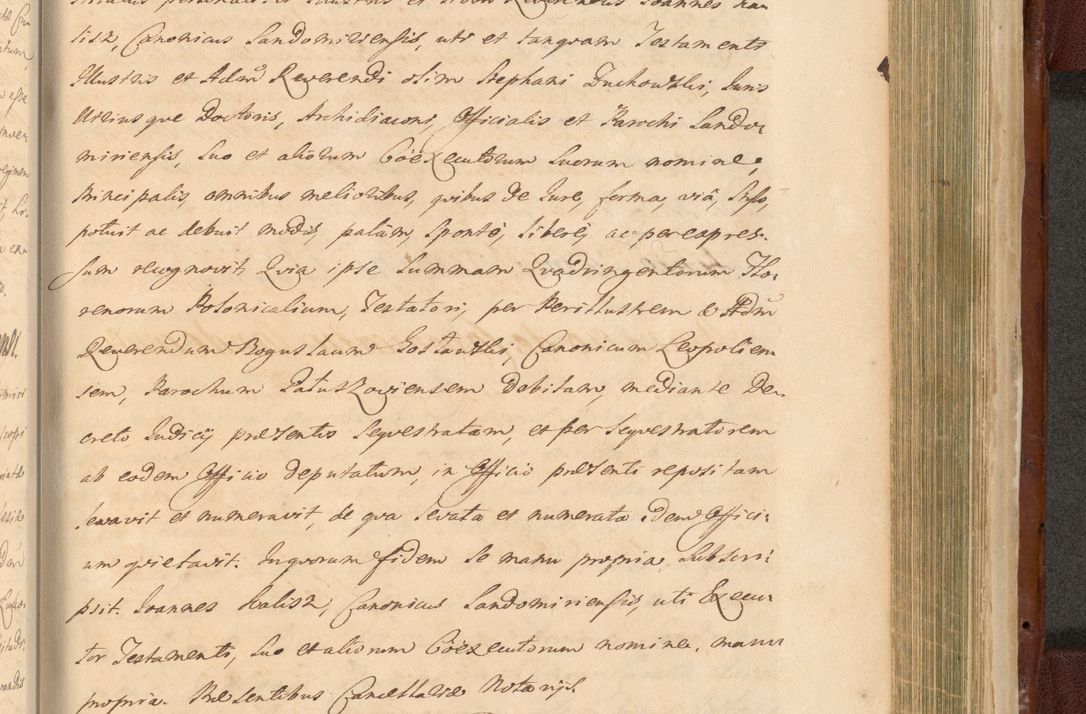 lisz, Canonicus Sandomiriensis, uti et tanquam Testamenti
Illustris et Admo Reverendi olim Stephani Zuchowski, Juris
Utriusque Doctoris, Archidiaconi, Officialis et Parochi Sando-
miriensis, suo et aliorum Coexecutorum suorum nomine,
Principalis, omnibus melioribus, quibus de Jure, forma, viâ, stylo,
potuit ac debuit modis, palàm, sponte, liberè, ac per expres-
sum recognovit, Quia ipse summam Quadringentorum Flo-
renorum Polonicalium, Testatori, per Perillustrem & Adm
Reverendum Boguslaum Gostawski, Canonicum Leopolien-
sem, Parochum debitam, mediante De-
creto Judicij præsentis sequestratam, et per sequestratorem
ab eodem Officio deputatum, in Officio præsenti repositam
levavit et numeravit, de qua levata et numerata idem Offici-
um quietavit. In quorum fidem se manu propria subscri-
psit. Joannes Kalisz, Canonicus Sandomiriensis, uti Execu-
tor Testamenti, suo et aliorum Coëxecutorum nomine, manu
propria. Præsentibus Cancellariæ Notarijs.